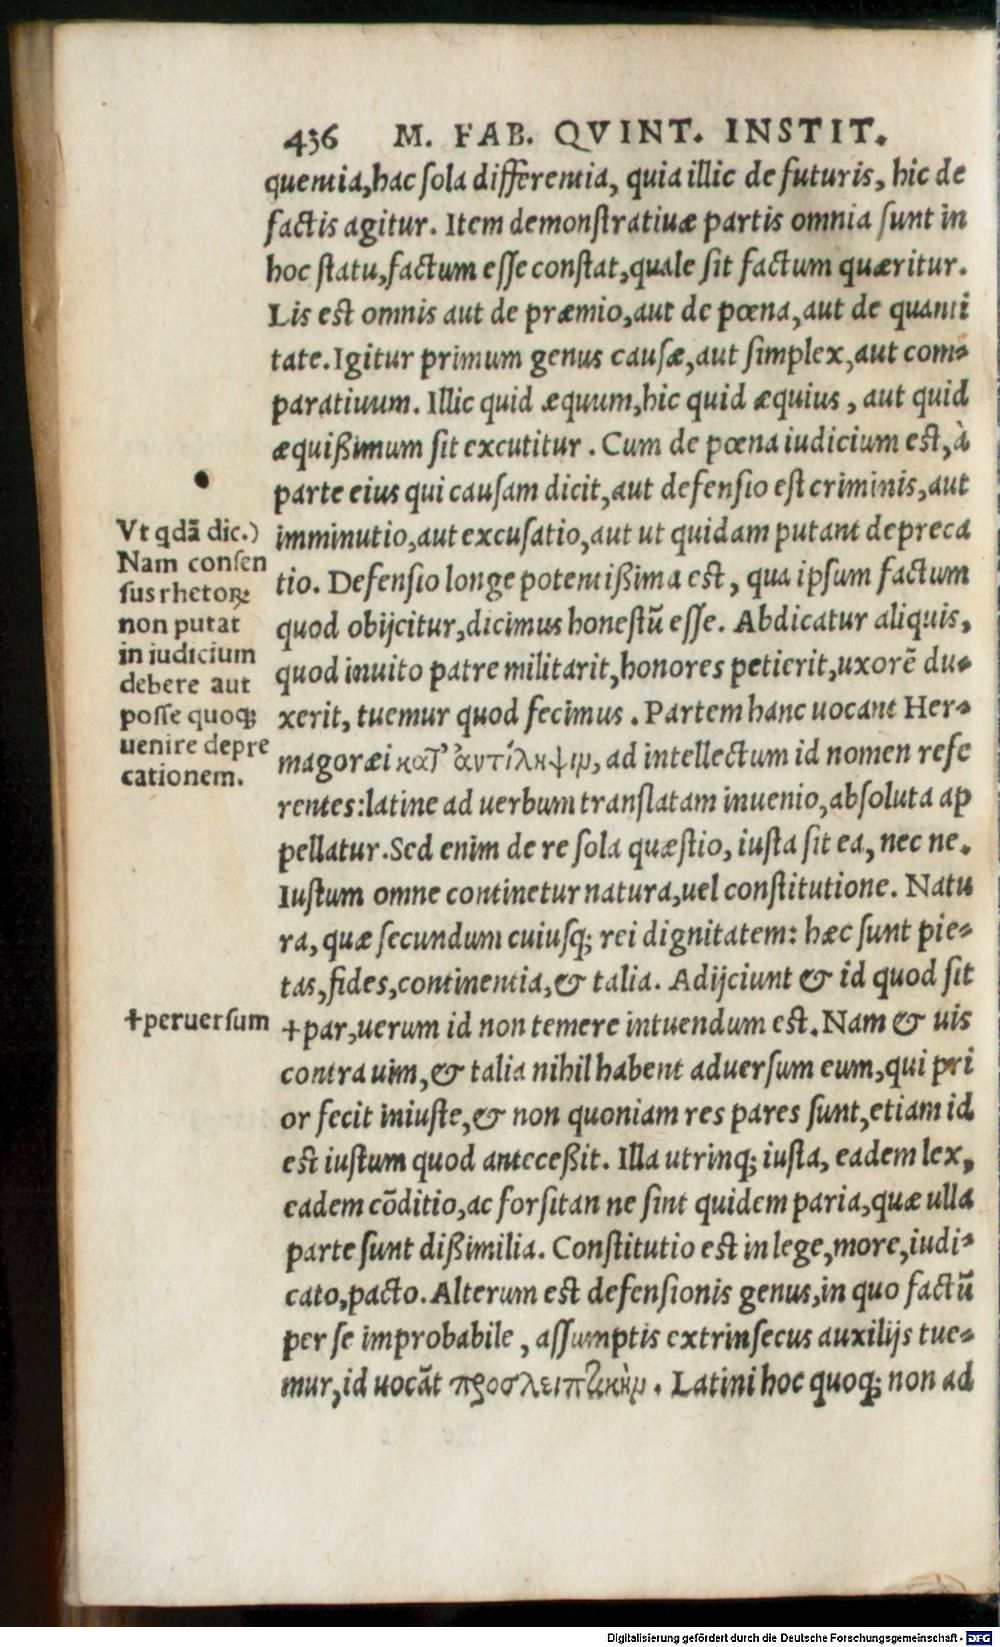 436 M. FAB. QVINT. INSTIT.
quentia,hac ſola differentia, quia illic de futuris, hic de
factis agitur. Item demonſtratiuæ partis omnia ſunt in
hoc ſtatu,factum eſſe conſtat,quale ſit factum quæritur.
Lis eſt omnis aut de præmio,aut de pœna,aut de quanti
tate.Igitur primum genus cauſæ,aut ſimplex,aut com-
paratiuum. Illic quid æquum,hic quid æquius, aut quid
æquißimum ſit excutitur. Cum de pœna iudicium eſt,à
parte eius qui cauſam dicit,aut defenſio eſt criminis,aut
imminutio,aut excuſatio,aut ut quidam putant depreca
tio. Defenſio longe potentißima eſt, qua ipſum factum
quod obijcitur,dicimus honeſtū eſſe. Abdicatur aliquis,
quod inuito patre militarit,honores petierit,uxorē du-
xerit, tuemur quod fecimus. Partem hanc uocant Her-
magoræi κατ᾽ ἀντίληψιν, ad intellectum id nomen refe
rentes:latine ad uerbum tranſlatam inuenio,abſoluta ap
pellatur.Sed enim de re ſola quæſtio, iuſta ſit ea, nec ne.
Iuſtum omne continetur natura,uel conſtitutione. Natu
ra, quæ ſecundum cuiuſq; rei dignitatem: hæc ſunt pie-
tas,fides,continentia,& talia. Adijciunt & id quod ſit
+par,uerum id non temere intuendum eſt.Nam & uis
contra uim,& talia nihil habent aduerſum eum,qui pri
or fecit iniuſte,& non quoniam res pares ſunt,etiam id
eſt iuſtum quod anteceßit. Illa utrinq; iuſta, eadem lex,
eadem cōditio,ac forſitan ne ſint quidem paria,quæ ulla
parte ſunt dißimilia. Conſtitutio eſt in lege,more,iudi-
cato,pacto.Alterum eſt defenſionis genus,in quo factū
per ſe improbabile, aſſumptis extrinſecus auxilijs tue-
mur,id uocāt προσλειπτικὴν. Latini hoc quoq; non ad
Vt qdā dic.)
Nam conſen
ſus rhetoꝝ
non putat
in iudicium
debere aut
poſſe quoq;
uenire depre
cationem.
+peruerſum
Digitalisierung gefördert durch die Deutsche Forschungsgemeinschaft - DFG